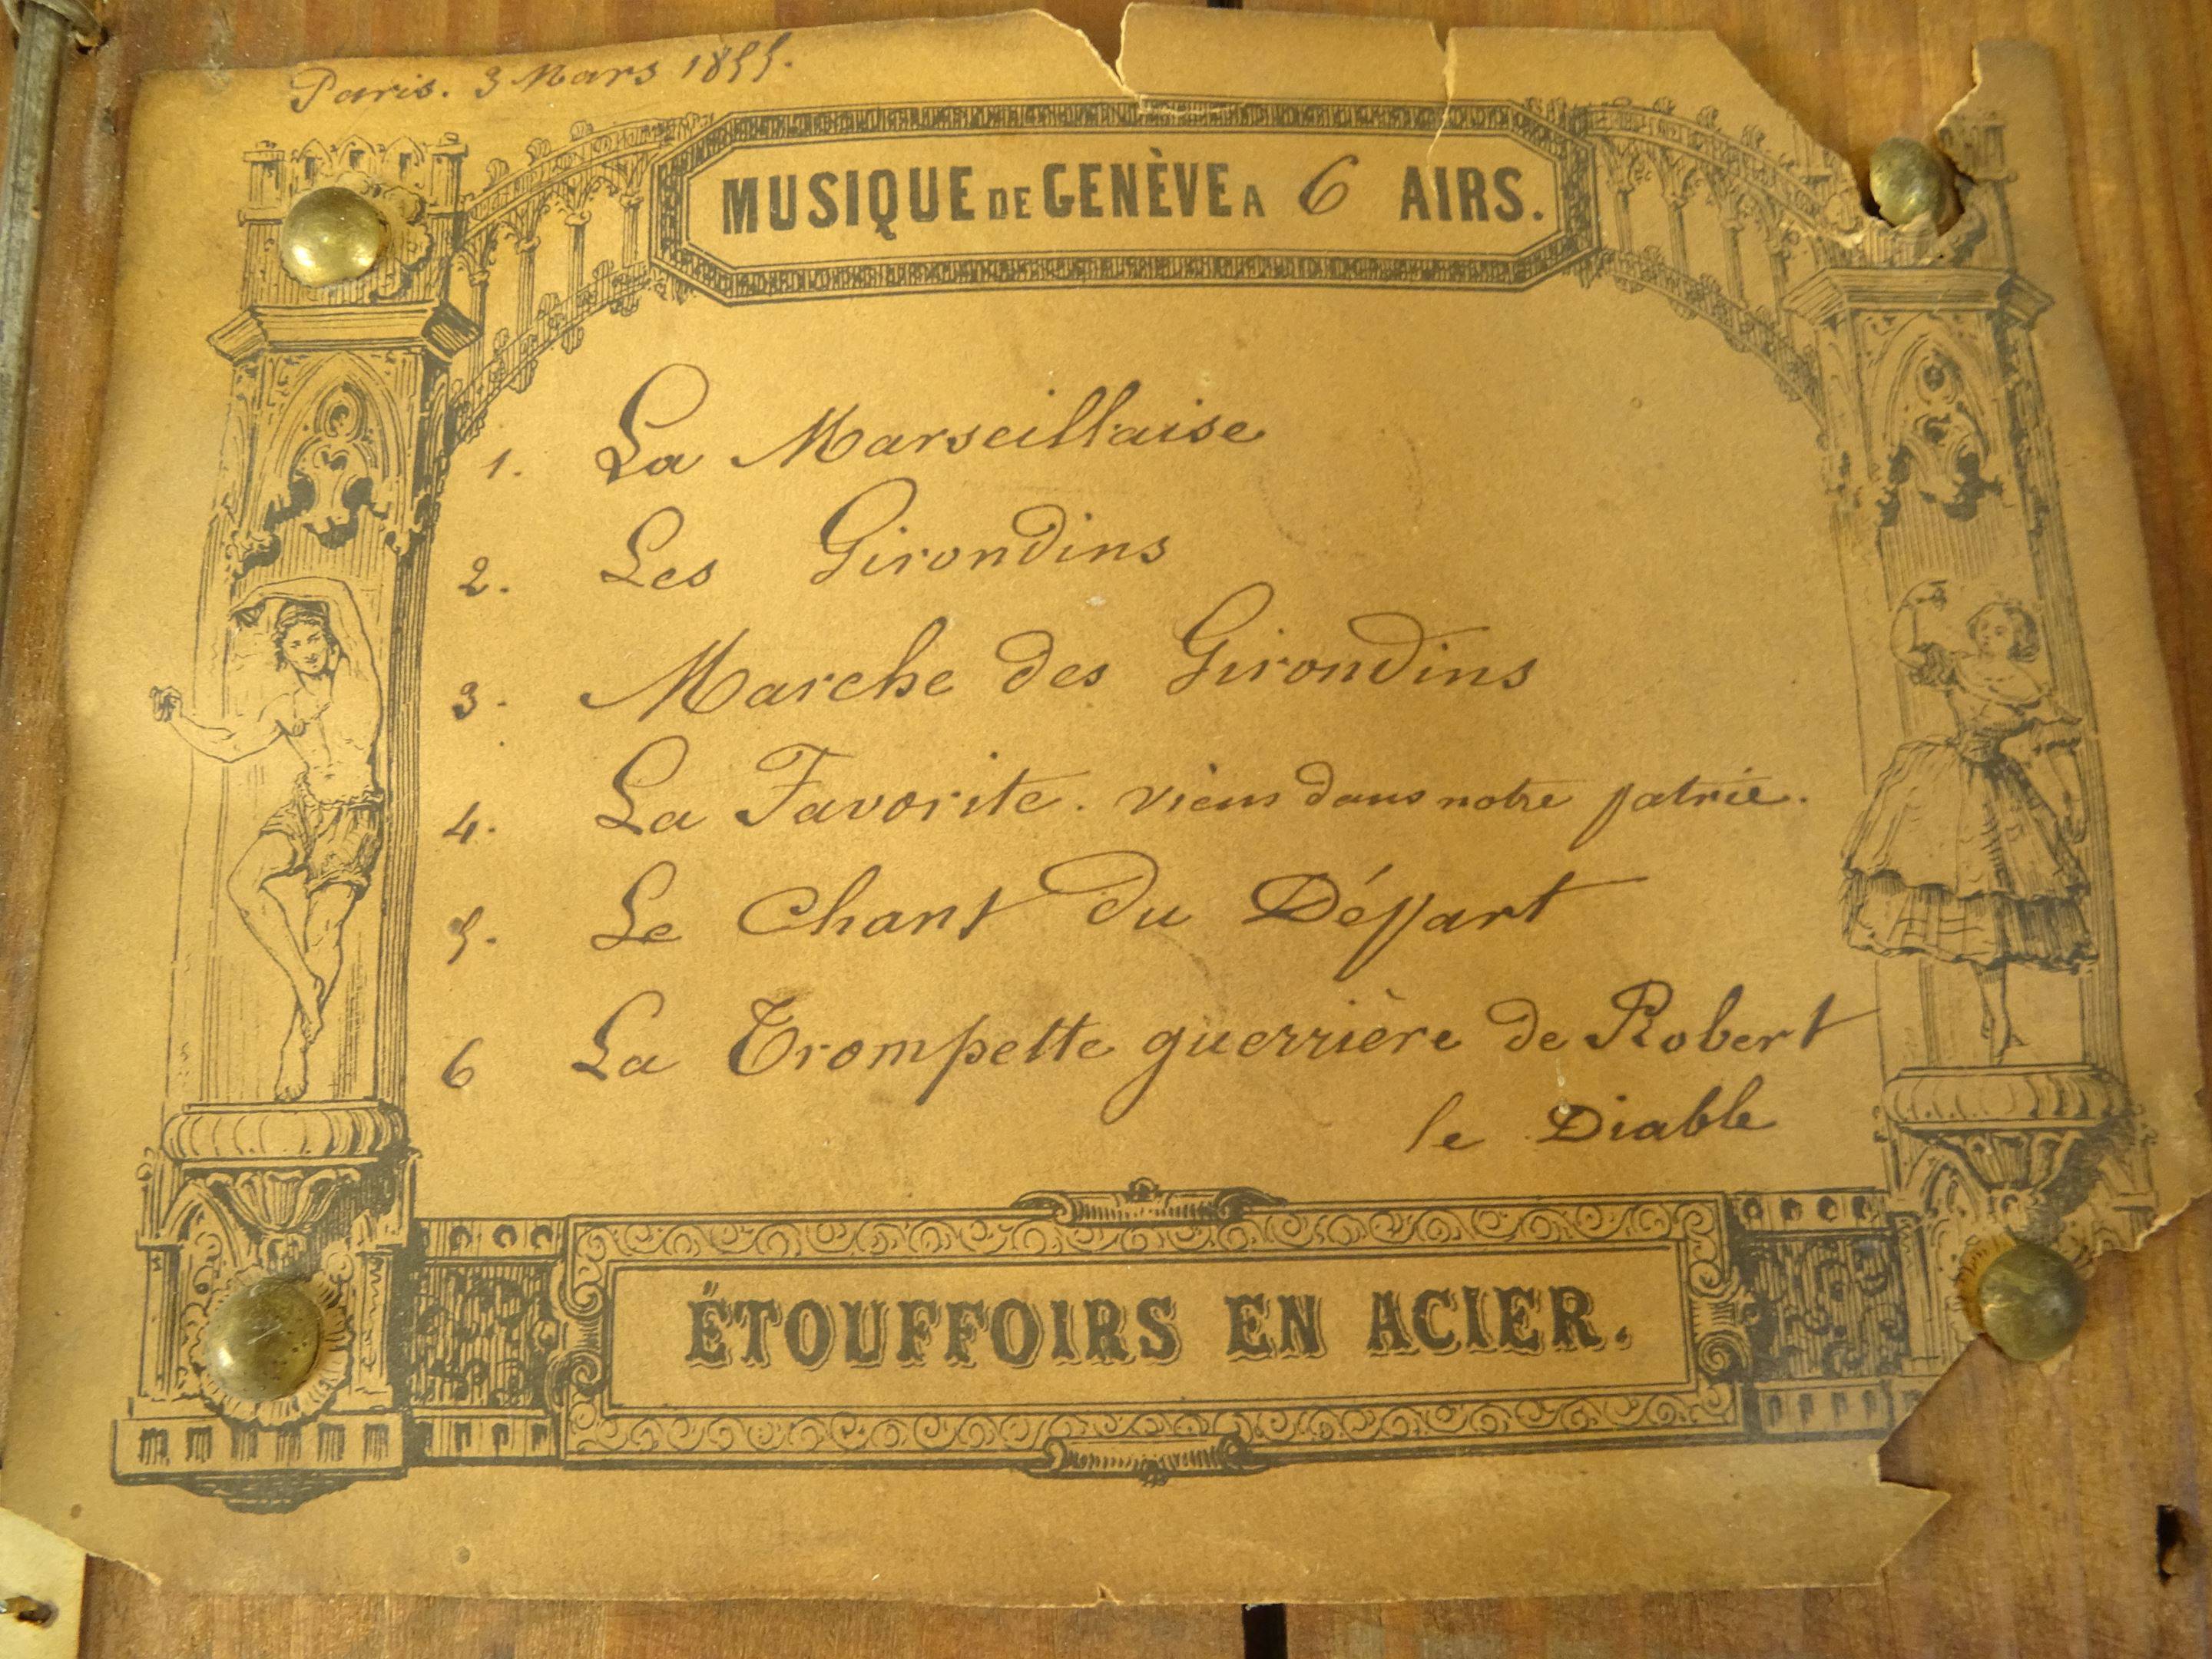 Paris. 3 Mars 1855.
MUSIQUE DE GENÈVE A 6 AIRS.
1. La Marseillaise
2. Les Girondins
3. Marche des Girondins
4. La Favorite. viens dans notre patrie.
5. Le Chant du Départ
6 La Trompette guerrière de Robert
le Diable
ÉTOUFFOIRS EN ACIER.